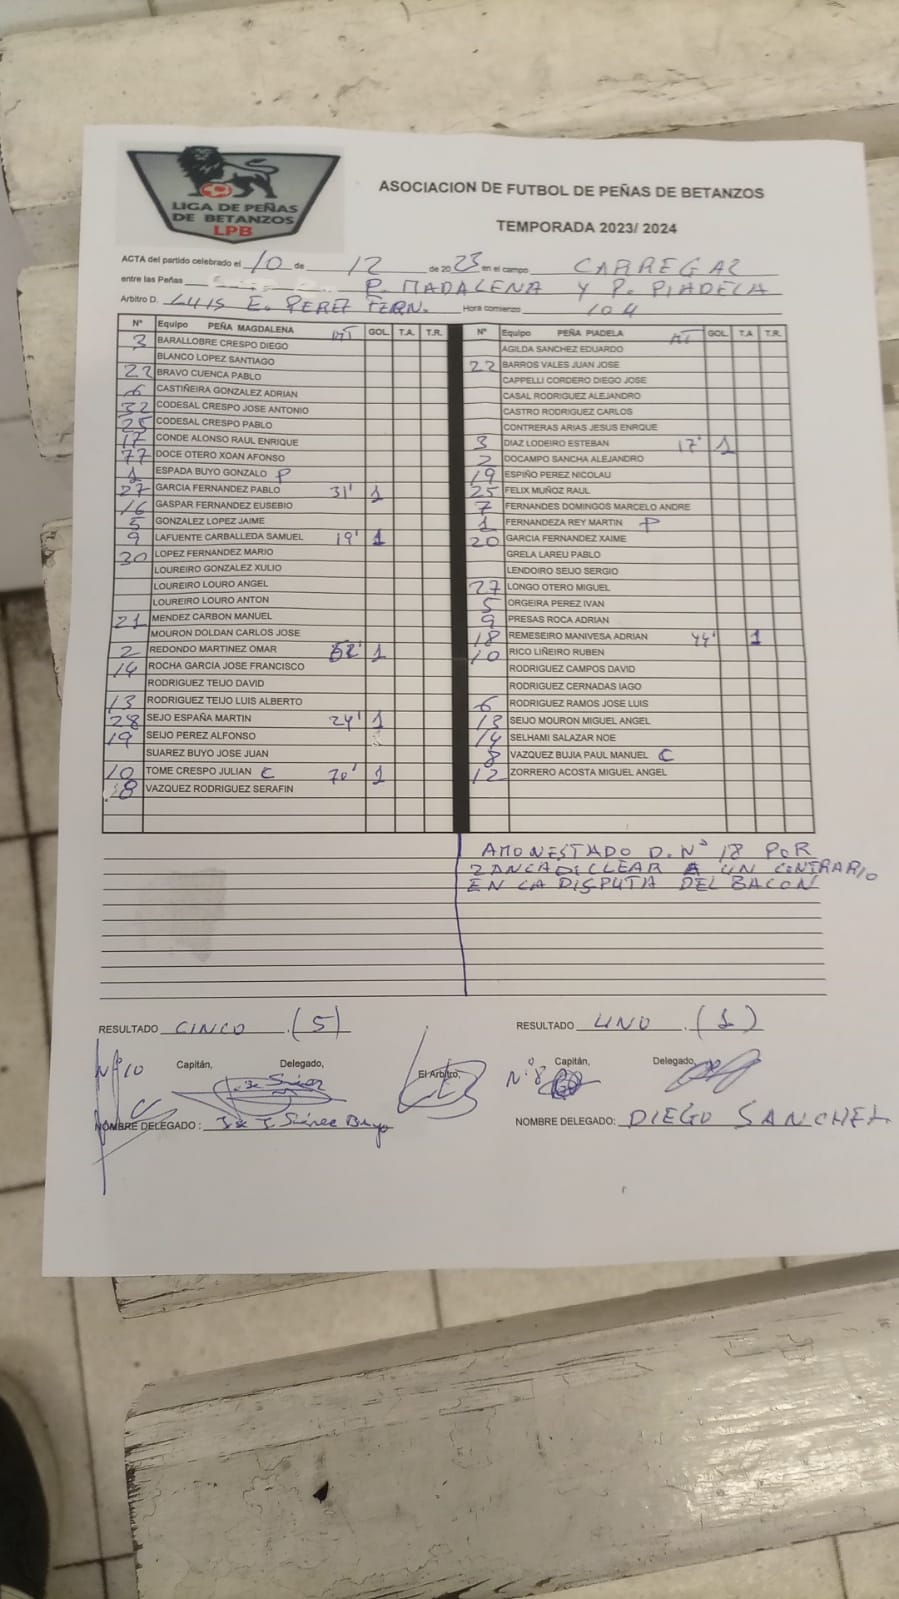 LIGA DE PEÑAS
DE BETANZOS
LPB
ASOCIACION DE FUTBOL DE PEÑAS DE BETANZOS
TEMPORADA 2023/ 2024
ACTA del partido celebrado el 10 de 12 de 2023 en el campo CARREGAL
entre las Peñas P. MADALENA Y P. PIADELA
Arbitro D. LUIS E. PEREZ FERN. Hora comienzo 10 4
Nº Equipo PEÑA MAGDALENA MT GOL. T.A. T.R. Nº Equipo PEÑA PIADELA MT GOL. T.A T.R.
3 BARALLOBRE CRESPO DIEGO AGILDA SANCHEZ EDUARDO
BLANCO LOPEZ SANTIAGO 22 BARROS VALES JUAN JOSE
22 BRAVO CUENCA PABLO CAPPELLI CORDERO DIEGO JOSE
6 CASTIÑEIRA GONZALEZ ADRIAN CASAL RODRIGUEZ ALEJANDRO
32 CODESAL CRESPO JOSE ANTONIO CASTRO RODRIGUEZ CARLOS
25 CODESAL CRESPO PABLO CONTRERAS ARIAS JESUS ENRQUE
17 CONDE ALONSO RAUL ENRIQUE 3 DIAZ LODEIRO ESTEBAN 17' 1
77 DOCE OTERO XOAN AFONSO 2 DOCAMPO SANCHA ALEJANDRO
1 ESPADA BUYO GONZALO P 19 ESPIÑO PEREZ NICOLAU
27 GARCIA FERNANDEZ PABLO 31' 1 25 FELIX MUÑOZ RAUL
16 GASPAR FERNANDEZ EUSEBIO 7 FERNANDES DOMINGOS MARCELO ANDRE
5 GONZALEZ LOPEZ JAIME 1 FERNANDEZA REY MARTIN P
9 LAFUENTE CARBALLEDA SAMUEL 19' 1 20 GARCIA FERNANDEZ XAIME
30 LOPEZ FERNANDEZ MARIO GRELA LAREU PABLO
LOUREIRO GONZALEZ XULIO LENDOIRO SEIJO SERGIO
LOUREIRO LOURO ANGEL 27 LONGO OTERO MIGUEL
LOUREIRO LOURO ANTON 5 ORGEIRA PEREZ IVAN
21 MENDEZ CARBON MANUEL 9 PRESAS ROCA ADRIAN
MOURON DOLDAN CARLOS JOSE 18 REMESEIRO MANIVESA ADRIAN 44' 1
2 REDONDO MARTINEZ OMAR 62' 1 10 RICO LIÑEIRO RUBEN
14 ROCHA GARCIA JOSE FRANCISCO RODRIGUEZ CAMPOS DAVID
RODRIGUEZ TEIJO DAVID RODRIGUEZ CERNADAS IAGO
13 RODRIGUEZ TEIJO LUIS ALBERTO 6 RODRIGUEZ RAMOS JOSE LUIS
28 SEJO ESPAÑA MARTIN 24' 1 13 SEIJO MOURON MIGUEL ANGEL
19 SEIJO PEREZ ALFONSO 14 SELHAMI SALAZAR NOE
SUAREZ BUYO JOSE JUAN 8 VAZQUEZ BUJIA PAUL MANUEL C
10 TOME CRESPO JULIAN C 70' 1 12 ZORRERO ACOSTA MIGUEL ANGEL
8 VAZQUEZ RODRIGUEZ SERAFIN
AMONESTADO D. Nº 18 POR
ZANCADILLEAR A UN CONTRARIO
EN LA DISPUTA DEL BALON
RESULTADO CINCO (5) RESULTADO UNO (1)
Nº 10 Capitán, Delegado, El Arbitro, Nº 8 Capitán, Delegado,
NOMBRE DELEGADO : J. Suárez Buyo NOMBRE DELEGADO: DIEGO SANCHEZ